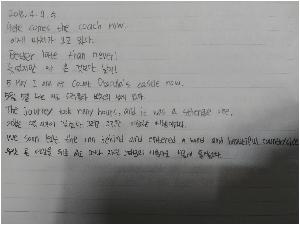 2018. 4. 9. 
Here comes the coach now.
이제 마차가 오고 있다.
Better late than never!
늦었지만 안 온 것보단 낫지!
5 May I am at Count Dracula's castle now.
5월 5일 나는 지금 드라큘라 백작의 성에 있다.
The journey took many hours, and it was a strange one.
여행은 많은 시간이 걸렸다 그리고 그것은 이상한 여행이었다.
We soon left the inn behind and entered a wild and beautiful countryside.
우리는 곧 여관을 뒤로 하고 아름다운 시골로 들어갔다.